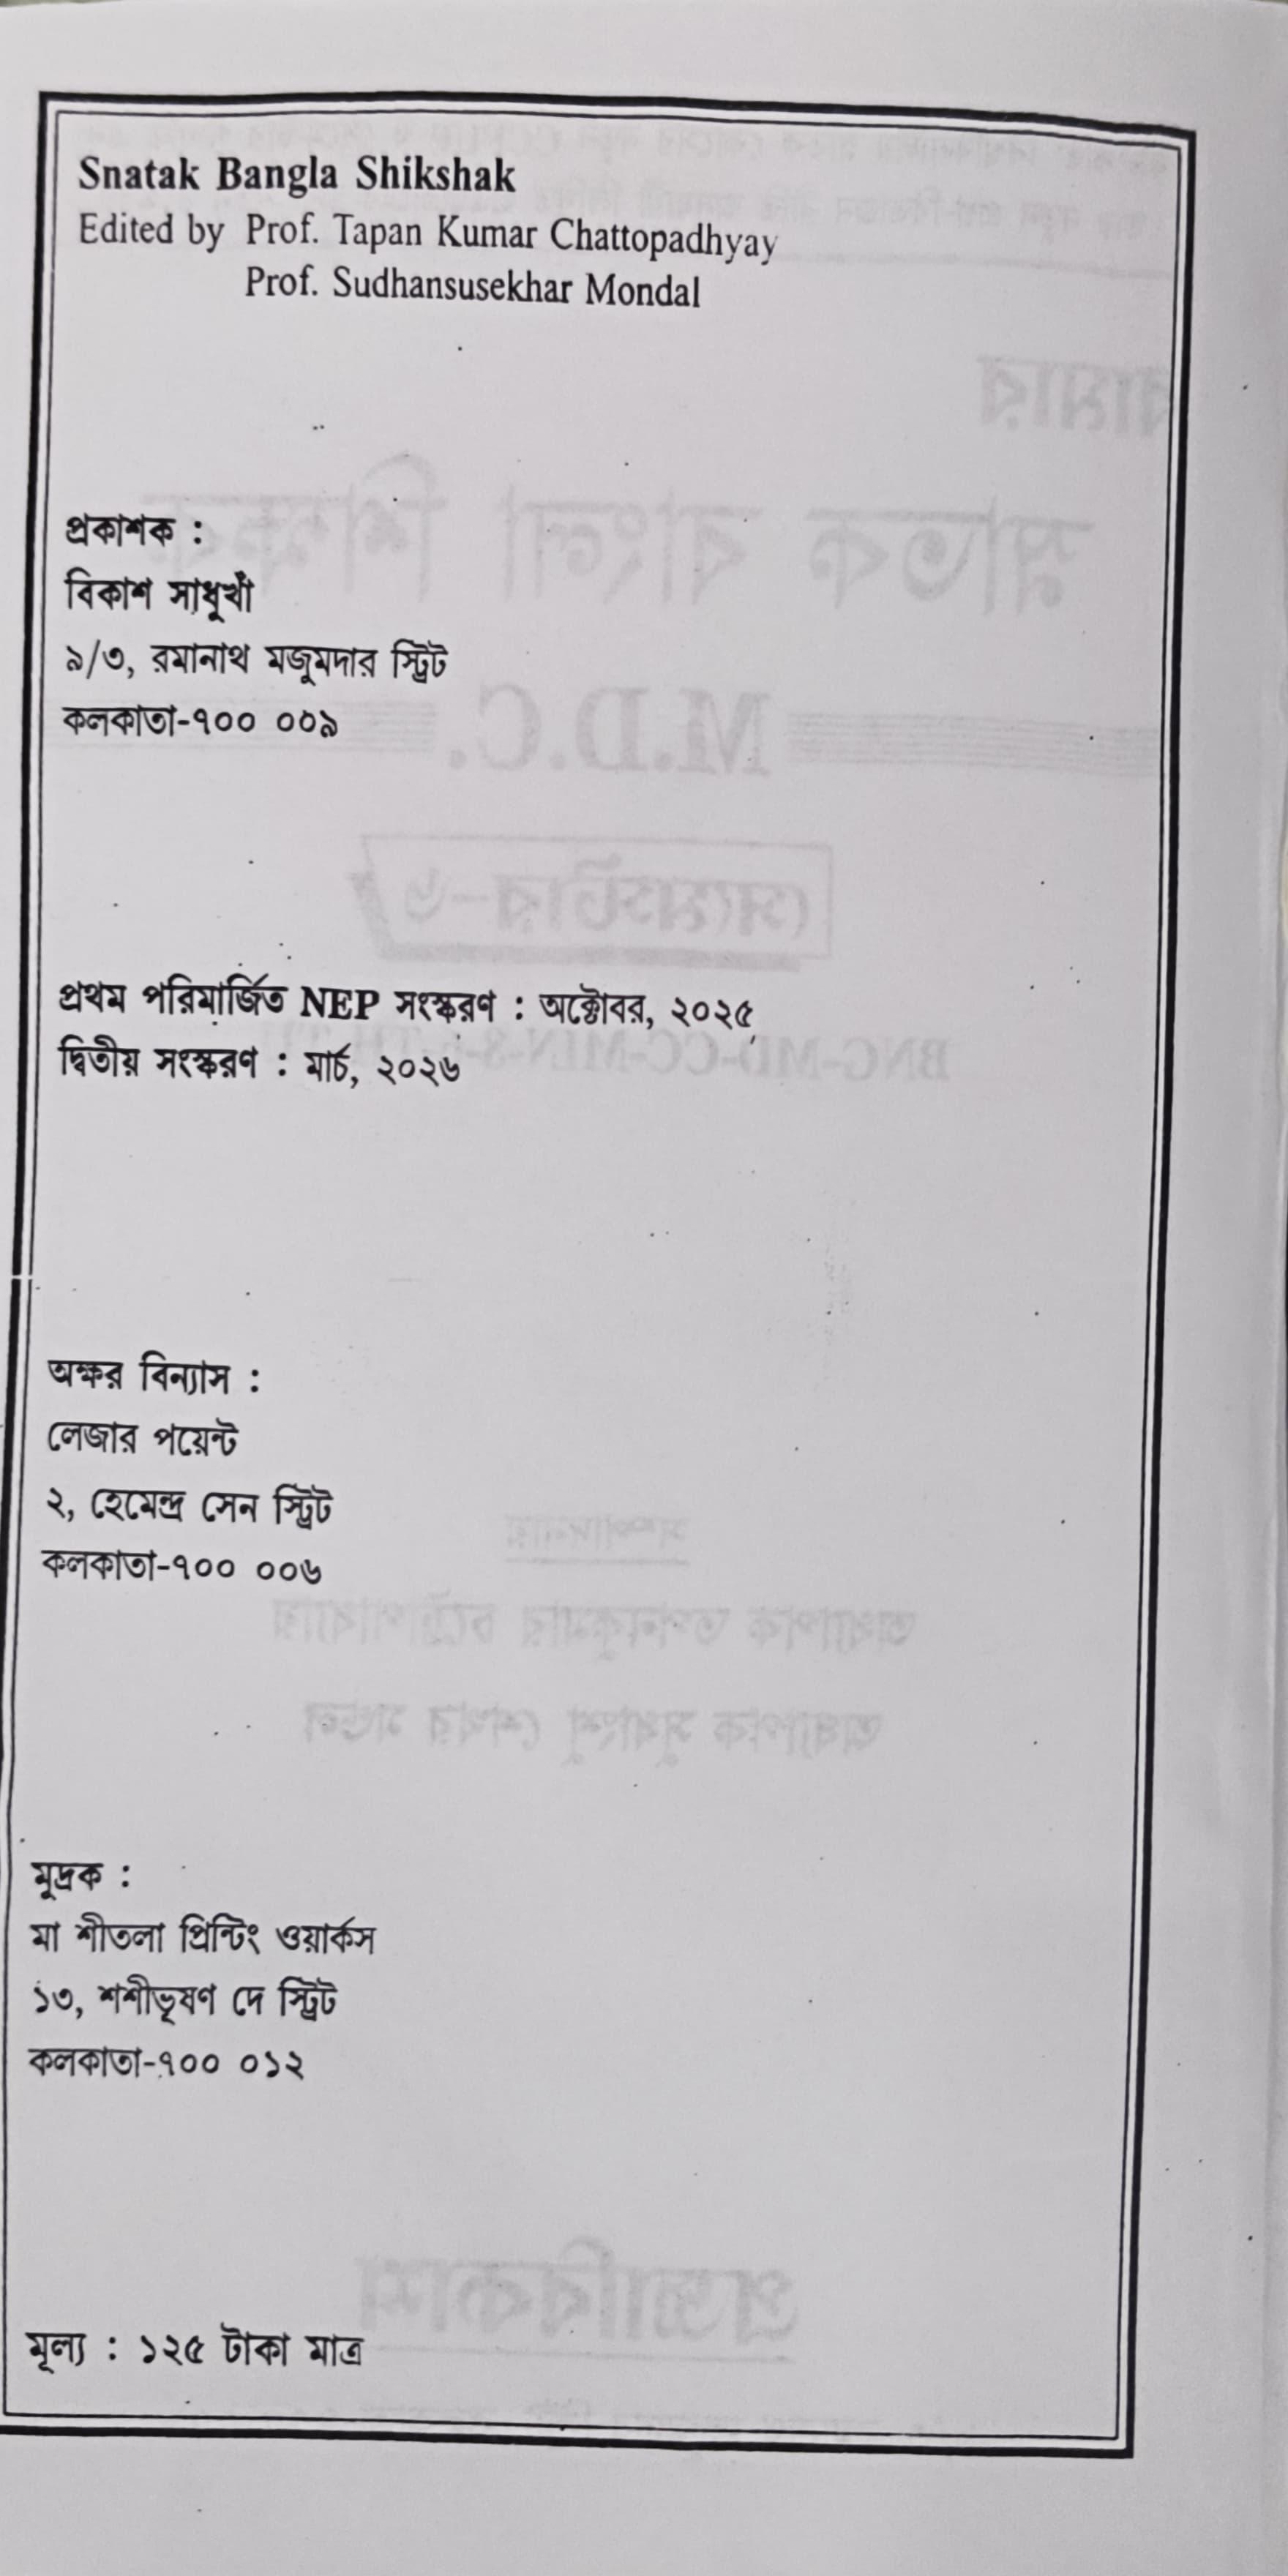 Snatak Bangla Shikshak
Edited by Prof. Tapan Kumar Chattopadhyay
Prof. Sudhansusekhar Mondal
প্রকাশক :
বিকাশ সাধুখাঁ
৯/৩, রমানাথ মজুমদার স্ট্রিট
কলকাতা-৭০০ ০০৯
প্রথম পরিমার্জিত NEP সংস্করণ : অক্টোবর, ২০২৫
দ্বিতীয় সংস্করণ : মার্চ, ২০২৬
অক্ষর বিন্যাস :
লেজার পয়েন্ট
২, হেমেন্দ্র সেন স্ট্রিট
কলকাতা-৭০০ ০০৬
মুদ্রক :
মা শীতলা প্রিন্টিং ওয়ার্কস
১৩, শশীভূষণ দে স্ট্রিট
কলকাতা-৭০০ ০১২
মূল্য : ১২৫ টাকা মাত্র